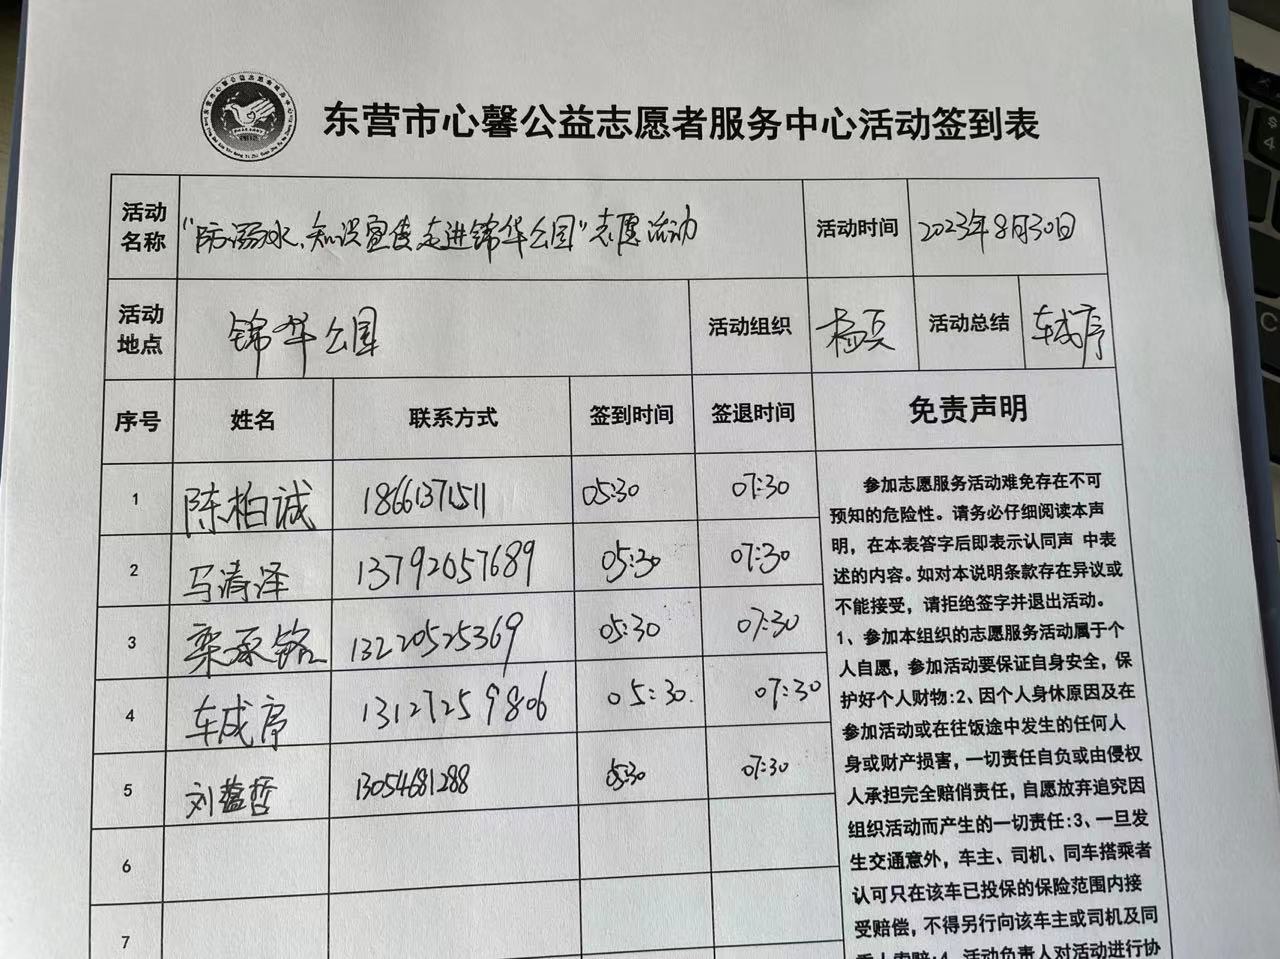 东营市心馨公益志愿者服务中心活动签到表
活动名称 "防溺水,知识宣传走进锦华公园"志愿活动 活动时间 2023年8月30日
活动地点 锦华公园 活动组织 活动总结 车成序
序号 姓名 联系方式 签到时间 签退时间 免责声明
1 陈柏诚 18661371511 05:30 07:30
2 马清泽 13792057689 05:30 07:30
3 栾承铭 13220525369 05:30 07:30
4 车成序 13127259806 05:30. 07:30
5 刘蕴哲 13054681288 05:30 07:30
6
7
参加志愿服务活动难免存在不可
预知的危险性。请务必仔细阅读本声
明，在本表答字后即表示认同声 中表
述的内容。如对本说明条款存在异议或
不能接受，请拒绝签字并退出活动。
1、参加本组织的志愿服务活动属于个
人自愿，参加活动要保证自身安全，保
护好个人财物:2、因个人身休原因及在
参加活动或在往饭途中发生的任何人
身或财产损害，一切责任自负或由侵权
人承担完全赔俏责任，自愿放弃追究因
组织活动而产生的一切责任:3、一旦发
生交通意外，车主、司机、同车搭乘者
认可只在该车已投保的保险范围内接
受赔偿，不得另行向该车主或司机及同
乘人索赔:4、活动负责人对活动进行协